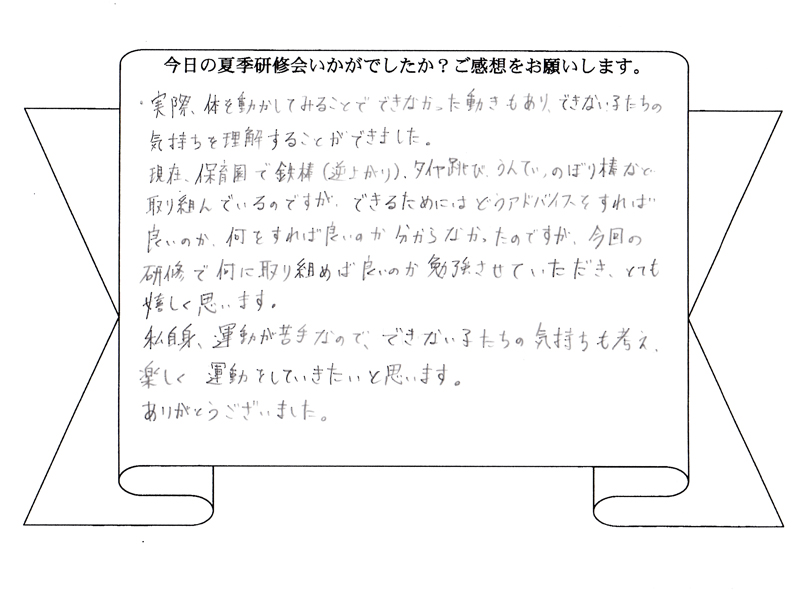 今日の夏季研修会いかがでしたか？ご感想をお願いします。
・実際、体を動かしてみることで できなかった動きもあり、できない子たちの
気持ちを理解することができました。
現在、保育園で鉄棒(逆上がり)、タイヤ跳び、うんてい、のぼり棒など
取り組んでいるのですが、できるためにはどうアドバイスをすれば
良いのか、何をすれば良いのか分からなかったのですが、今回の
研修で何に取り組めば良いのか勉強させていただき、とても
嬉しく思います。
私自身、運動が苦手なので、できない子たちの気持ちも考え、
楽しく 運動をしていきたいと思います。
ありがとうございました。